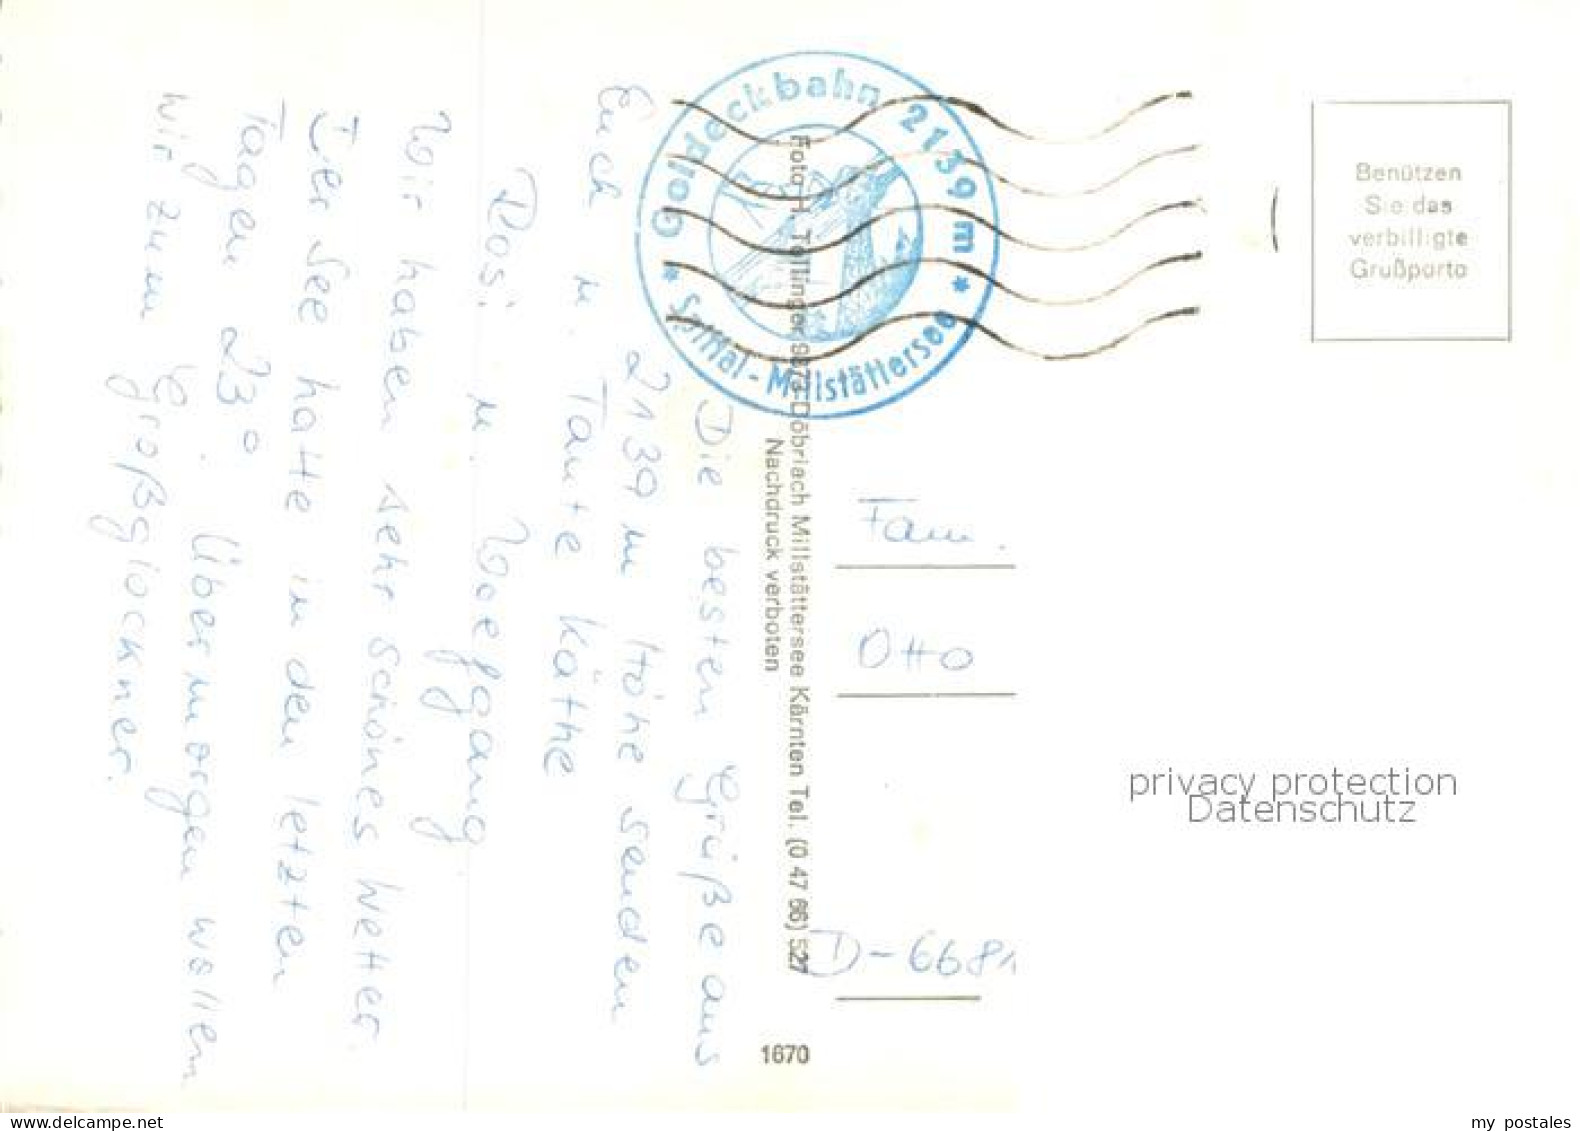 Die besten Grüße aus
2139 m Höhe senden
Euch u. Tante Käthe
Rosi u. Wolfgang
Wir haben sehr schönes Wetter.
Der See hatte in den letzten
Tagen 23°. Übermorgen wollen
wir zum Großglockner.
Goldeckbahn 2139 m
* Spittal - Millstättersee *
Foto H. Tollinger 9873 Döbriach Millstättersee Kärnten Tel. (0 47 66) 527
Nachdruck verboten
1670
Benützen
Sie das
verbilligte
Grußporto
Fam.
Otto
D-6681
privacy protection
Datenschutz
www.delcampe.net
my postales